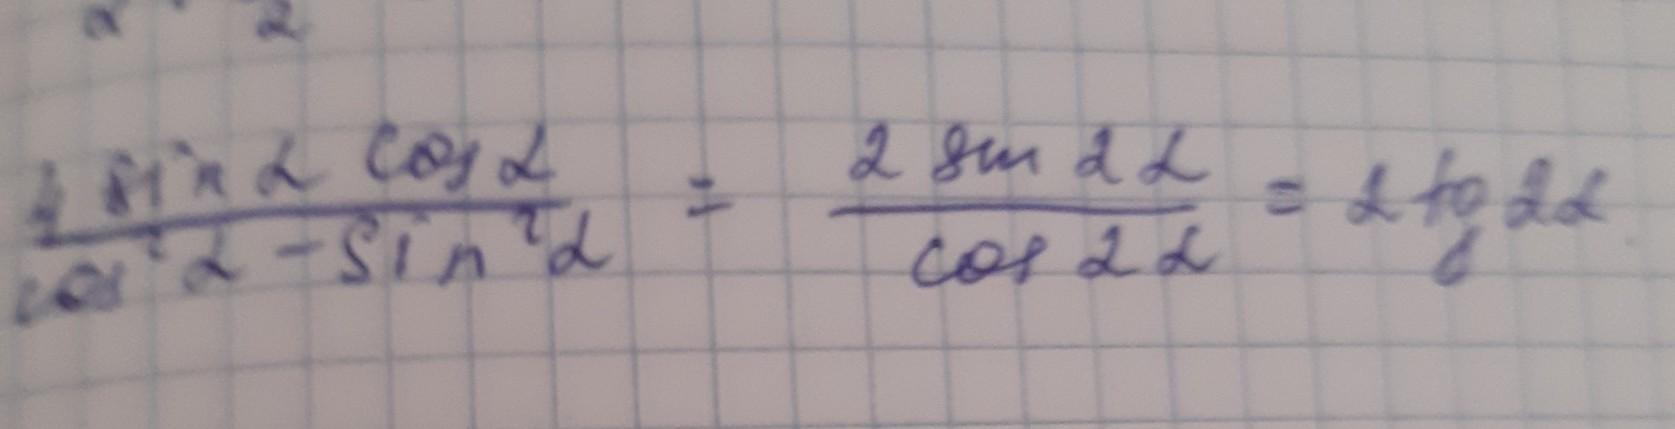 2
4 sin α cos α / cos²α - sin²α = 2 sin 2α / cos 2α = 2 tg 2α